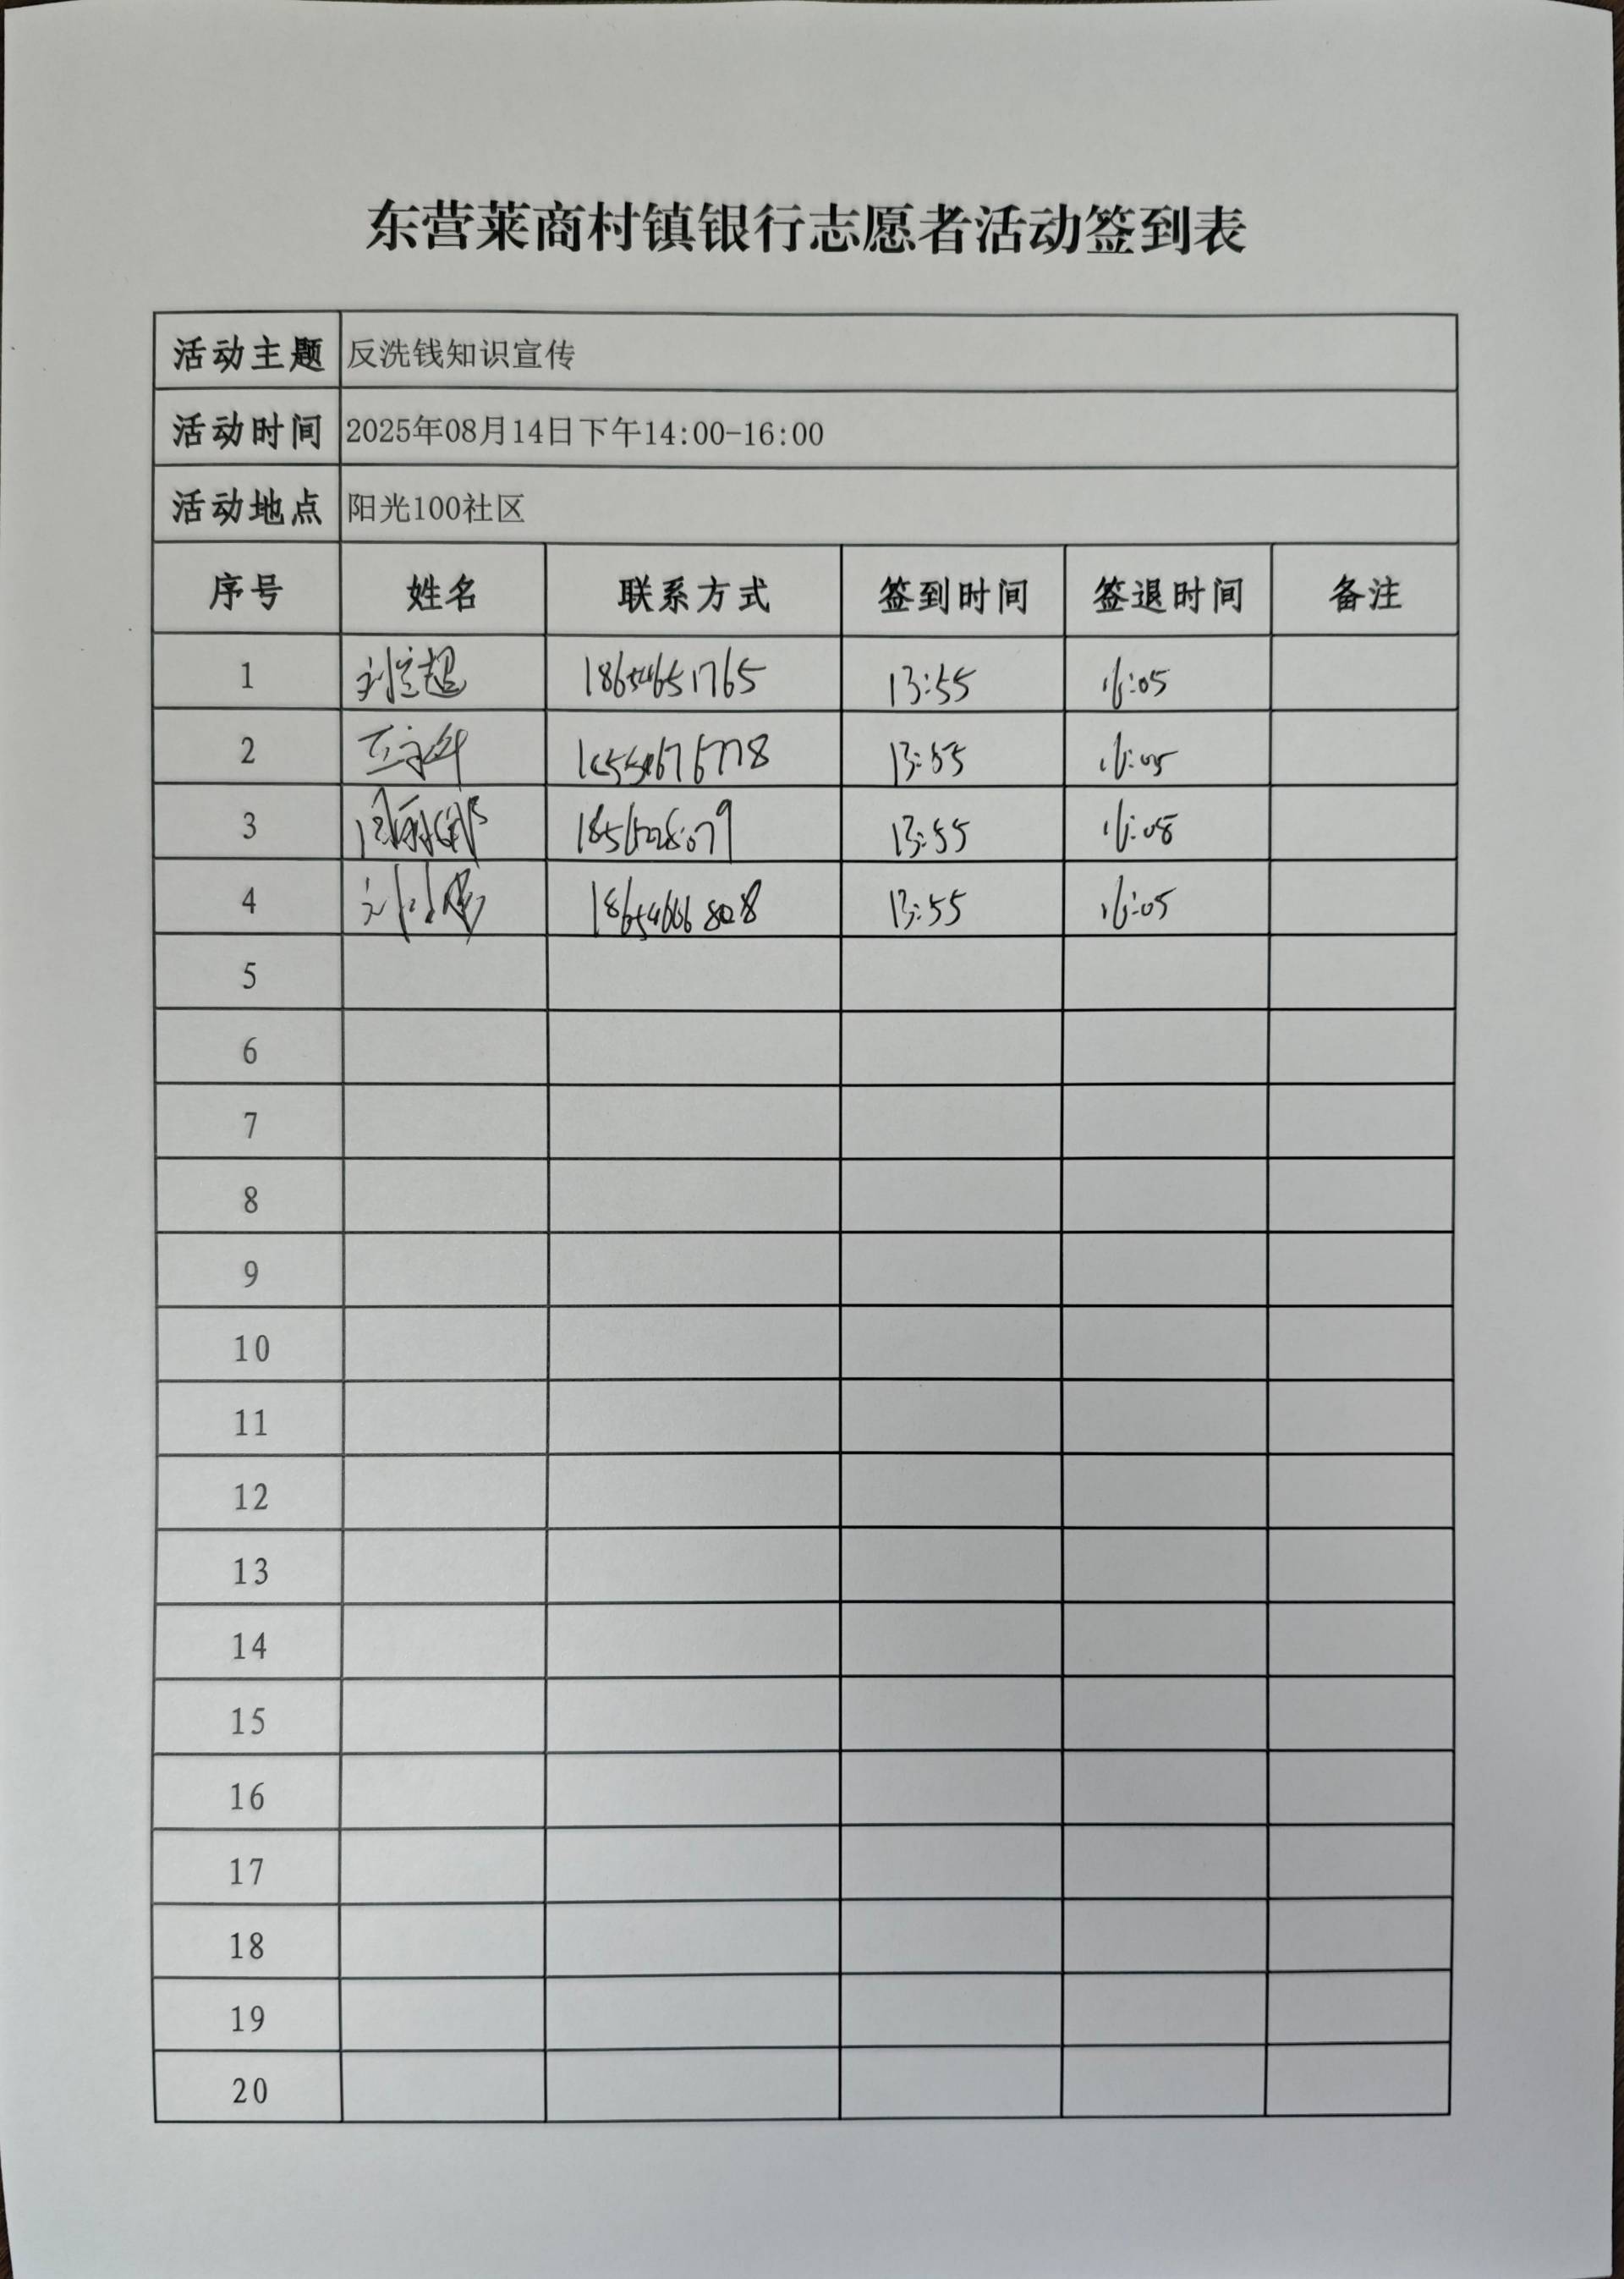 东营莱商村镇银行志愿者活动签到表
活动主题 反洗钱知识宣传
活动时间 2025年08月14日下午14:00-16:00
活动地点 阳光100社区
序号 姓名 联系方式 签到时间 签退时间 备注
1 18654651765 13:55 16:05
2 13:55 16:05
3 13:55 16:08
4 13:55 16:05
5
6
7
8
9
10
11
12
13
14
15
16
17
18
19
20